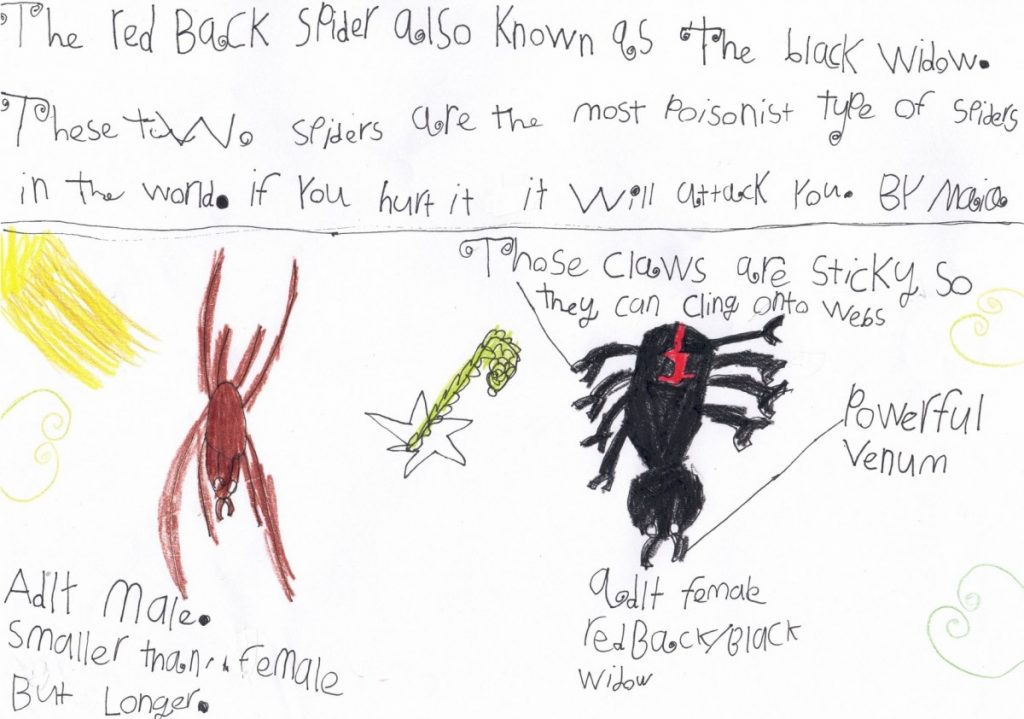 The red Back spider also known as The black widow.
These two spiders are the most Poisonist type of spiders
in the world. if You hurt it it will attack You. BY Maia
Those claws are sticky so
they can cling onto webs
Powerful
venum
Adlt Male.
smaller than female
But Longer.
adlt female
redBack/Black
widow